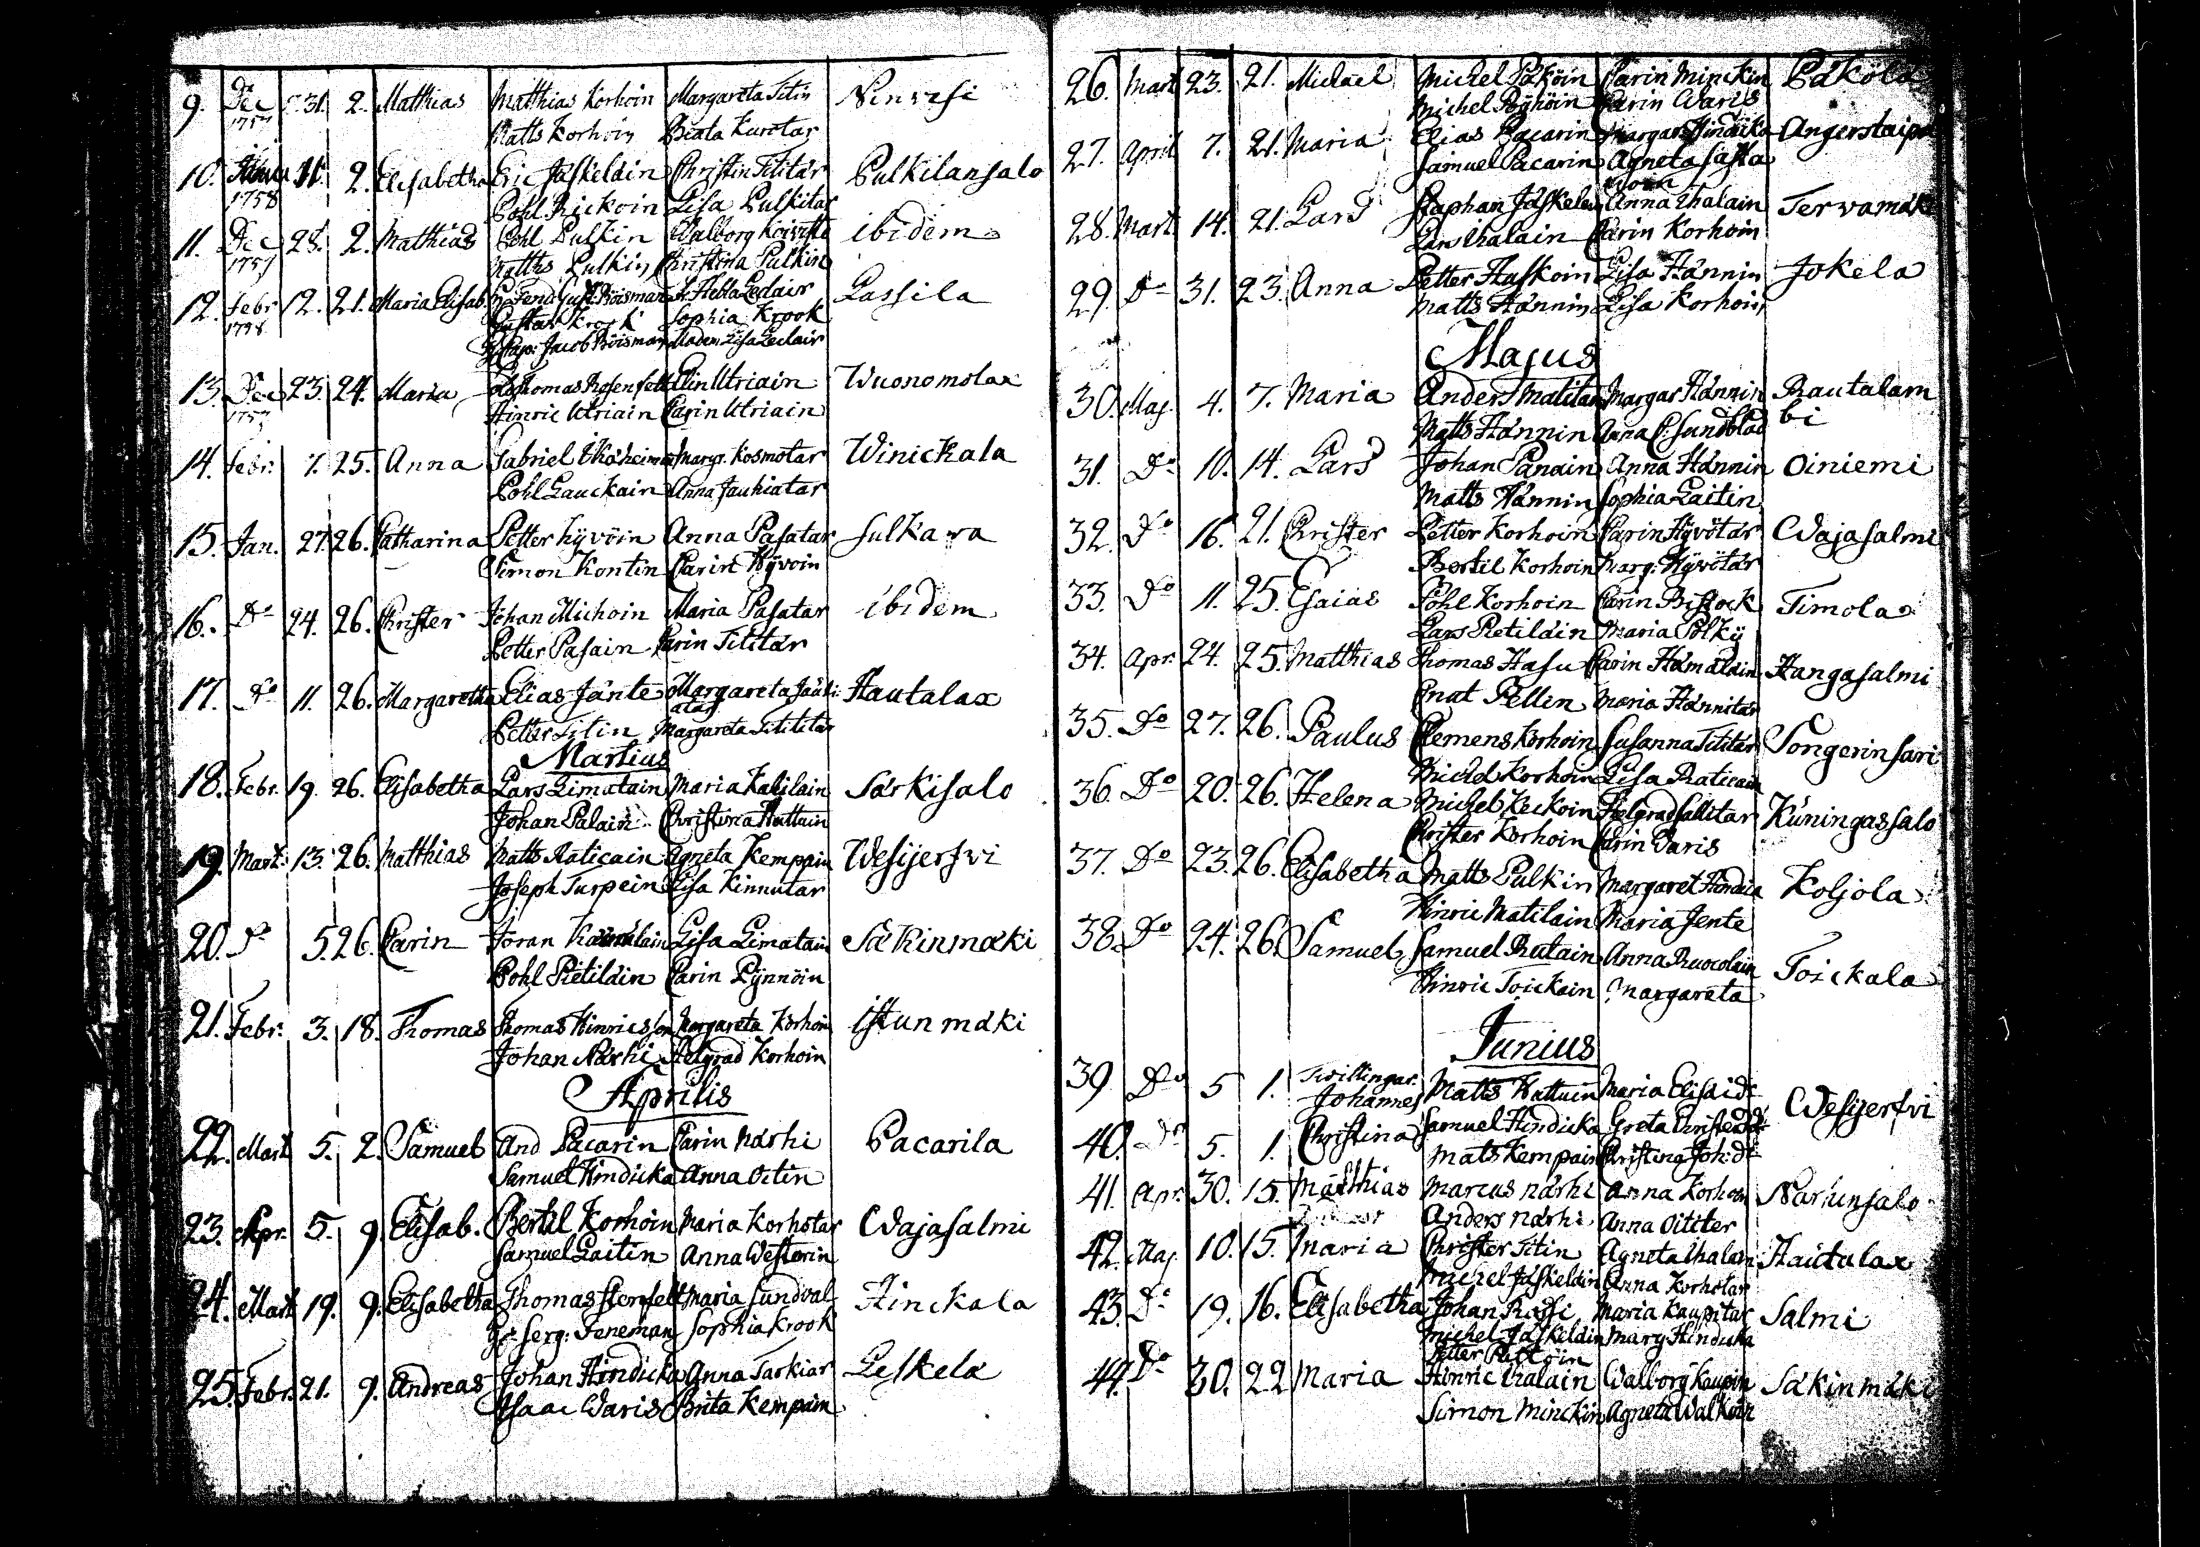 9. Dec 31. 2. Matthias Matthias Korhoin Margareta Titin
1757 Matts Korhoin Beata Kurotar
10. 2. Elisabetha Eric Jaskeläin Christin Tititär Pulkilansalo
1758 Pohl Rickoin Lisa Pulkitar
11. Dec 28. 2. Mathias Pohl Pulkin Walborg ibidem
1757 Matths Pulkin Christina Pulkin
12. Febr 12. 21. Maria Elisab. Lassila
1758 Gustav Krook Sophia Krook
Jacob Madam Lisa Leclair
13. Dec 23. 24. Maria Thomas Rosenfelt Elin Utriain Wuonomolax
1757 Hinric Utriain Carin Utriain
14. Febr. 7. 25. Anna Gabriel Margr. Kosmotar Winickala
Pohl Lauckain Anna Jauhiatar
15. Jan. 27. 26. Catharina Petter Hyvöin Anna Pasatar Sulkava
Simon Kontin Carin Hyvoin
16. Do 24. 26. Christer Johan Michoin Maria Pasatar ibidem
Petter Pasain Carin Tititär
17. Do 11. 26. Margaretha Elias Jänte Margareta Hautalax
Petter Titin Margareta Titititär
Martius
18. Febr. 19. 26. Elisabetha Lars Limatain Maria Särkisalo
Johan Palain Christina Hattuin
19. Mart. 13. 26. Matthias Matts Raticain Agneta Kempain Wesijerfvi
Joseph Turpein Lisa Kinnutar
20. Do 5. 26. Carin Joran Lisa Limatain Säkinmäki
Pohl Pietiläin Carin Pynnöin
21. Febr. 3. 18. Thomas Thomas Hinricsson Margareta Korhoin istunmäki
Johan Närhi Helgrad Korhoin
Aprilis
22. Mart 5. 2. Samuel And Pacarin Carin Närhi Pacarila
Samuel Hindicka Anna Oitin
23. Apr. 5. 9. Elisab. Bertil Korhoin Maria Korhotar Wajasalmi
Samuel Laitin Anna Westerin
24. Mart 19. 9. Elisabetha Thomas Stenfelt Maria Sundval Hinckala
Serg: Feneman Sophia Krook
25. Febr. 21. 9. Andreas Johan Hindicka Anna Tarkiar Leskelä
Isaac Waris Brita Kempain
26. Mart 23. 21. Michael Michel Päköin Carin Minckin Päkölä
Michel Pöyhöin Carin Waris
27. April 7. 21. Maria Elias Pacarin Margar Hindicka
Samuel Pacarin Agneta
28. Mart 14. 21. Lars Staphan Anna Ihalain Tervamäki
Lars Ihalain Carin Korhoin
29. Do 31. 23. Anna Petter Haskoin Lisa Hännin Jokela
Matts Hännin Lisa Korhoin
Majus
30. Maj. 4. 7. Maria Anders Matitan Margar Hännin Rautalam
Matts Hännin Anna C. Sundblad bi
31. Do 10. 14. Lars Johan Panain Anna Hännin Oiniemi
Matts Hännin Sophia Laitin
32. Do 16. 21. Christer Petter Korhoin Carin Hyvötär Wajasalmi
Bertil Korhoin Marg: Hyvötär
33. Do 11. 25. Esaias Pohl Korhoin Carin Bistock Timola
Lars Pietiläin Maria Pölky
34. Apr. 24. 25. Matthias Thomas Hasu Carin Hämäläin Hangasalmi
Cnut Pellin Maria Hännitär
35. Do 27. 26. Paulus Clemens Korhoin Susanna Tititär Songerinsari
Michel Korhoin Lisa Raticain
36. Do 20. 26. Helena Michel Keckoin Kuningassalo
Christer Korhoin Carin Varis
37. Do 23. 26. Elisabetha Matts Pulkin Margaret Hindica Koljola
Hinric Matilain Maria Jente
38. Do 24. 26. Samuel Samuel Rutain Anna Toickala
Hinric Toickain Margareta
Junius
39 Do 5 1. Tvillingar Johannes Matts Hattuin Maria Elisaidr Wesijerfvi
Samuel Hindicka Greta
40. Do 5. 1. Christina Mats Kempain Christina Joh:dr
41. Apr. 30. 15. Matthias Marcus närhi Anna Korhoin Närhinsalo
Anders närhi Anna Oititer
42. Maj. 10. 15. Maria Christer Titin Agneta Ihalain Hautalax
Michel Jäskeläin Anna Korhotar
43. Do 19. 16. Elisabetha Johan Maria Kaupitar Salmi
Michel Jäskeläin Marg Hindicka
Petter
44. Do 30. 22 Maria Hinric Ihalain Walborg Kaupin Säkinmäki
Simon Minckin Agneta Walkoin